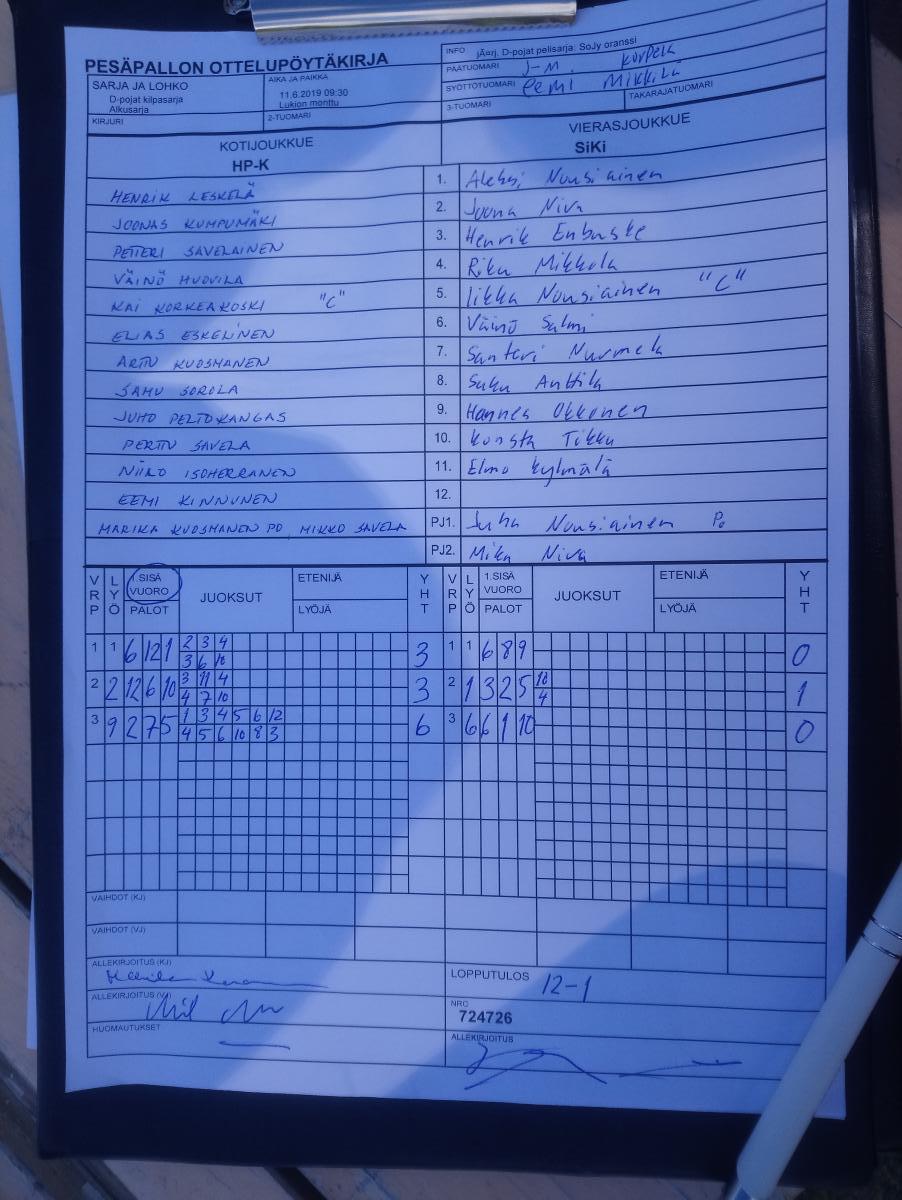 PESÄPALLON OTTELUPÖYTÄKIRJA
INFO jÄerj. D-pojat pelisarja: SoJy oranssi
PÄÄTUOMARI J-M. Korpela
SYÖTTÖTUOMARI Eemi Mikkilä
3-TUOMARI TAKARAJATUOMARI
SARJA JA LOHKO
D-pojat kilpasarja
Alkusarja
AIKA JA PAIKKA
11.6.2019 09:30
Lukion monttu
KIRJURI 2-TUOMARI
KOTIJOUKKUE VIERASJOUKKUE
HP-K SiKi
HENRIK LESKELÄ 1. Aleksi Nousiainen
JOONAS KUMPUMÄKI 2. Joona Niva
PETTERI SAVELAINEN 3. Henrik Enbuske
VÄINÖ HUOVILA 4. Riku Mikkola
KAI KORKEAKOSKI "C" 5. Iikka Nousiainen "C"
ELIAS ESKELINEN 6. Väinö Salmi
ARTTU KUOSMANEN 7. Santeri Nurmela
SAMU SOROLA 8. Saku Anttila
JUHO PELTOKANGAS 9. Hannes Okkonen
PERTTU SAVELA 10. Konsta Tikku
NIILO ISOHERRANEN 11. Elmo Kylmälä
EEMI KINNUNEN 12.
MARIKA KUOSMANEN PO, MIKKO SAVELA PJ1. Juha Nousiainen Po
PJ2. Mika Niva
VRP LYÖ 1.SISÄ VUORO PALOT JUOKSUT ETENIJÄ LYÖJÄ YHT VRP LYÖ 1.SISÄ VUORO PALOT JUOKSUT ETENIJÄ LYÖJÄ YHT
1 1 6 12 1 2 3 4 3 1 1 6 8 9 0
3 6 10
2 2 12 6 10 3 11 4 3 2 1 3 2 5 10 1
4 7 10 4
3 9 2 7 5 1 3 4 5 6 12 6 3 6 6 1 10 0
4 5 6 10 8 3
VAIHDOT (KJ)
VAIHDOT (VJ)
ALLEKIRJOITUS (KJ)
LOPPUTULOS 12-1
ALLEKIRJOITUS (VJ)
NRO
724726
HUOMAUTUKSET
ALLEKIRJOITUS